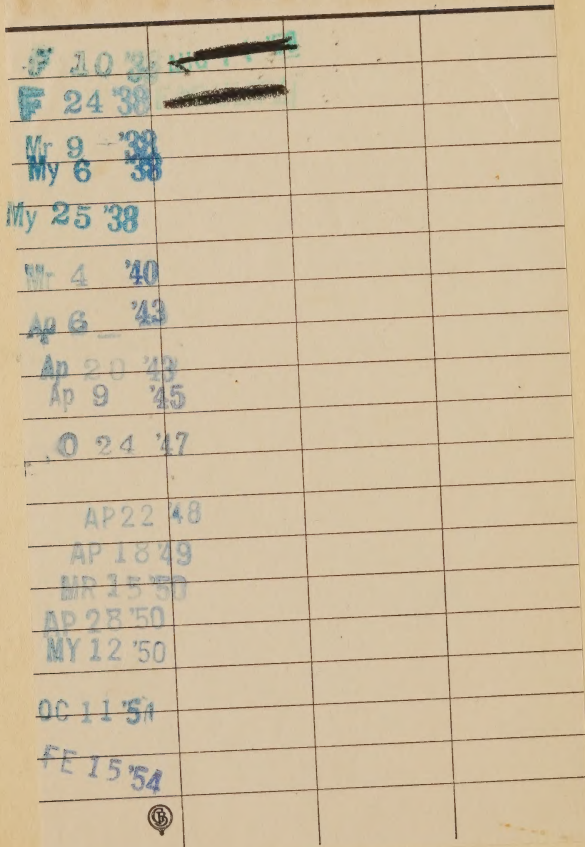 F 10 '38
F 24 '38
Mr 9 '38
My 6 '38
My 25 '38
Mr 4 '40
Ap 6 '43
Ap 20 '43
Ap 9 '45
O 24 '47
AP 22 '48
AP 18 '49
MR 15 '50
AP 28 '50
MY 12 '50
OC 11 '51
FE 15 '54